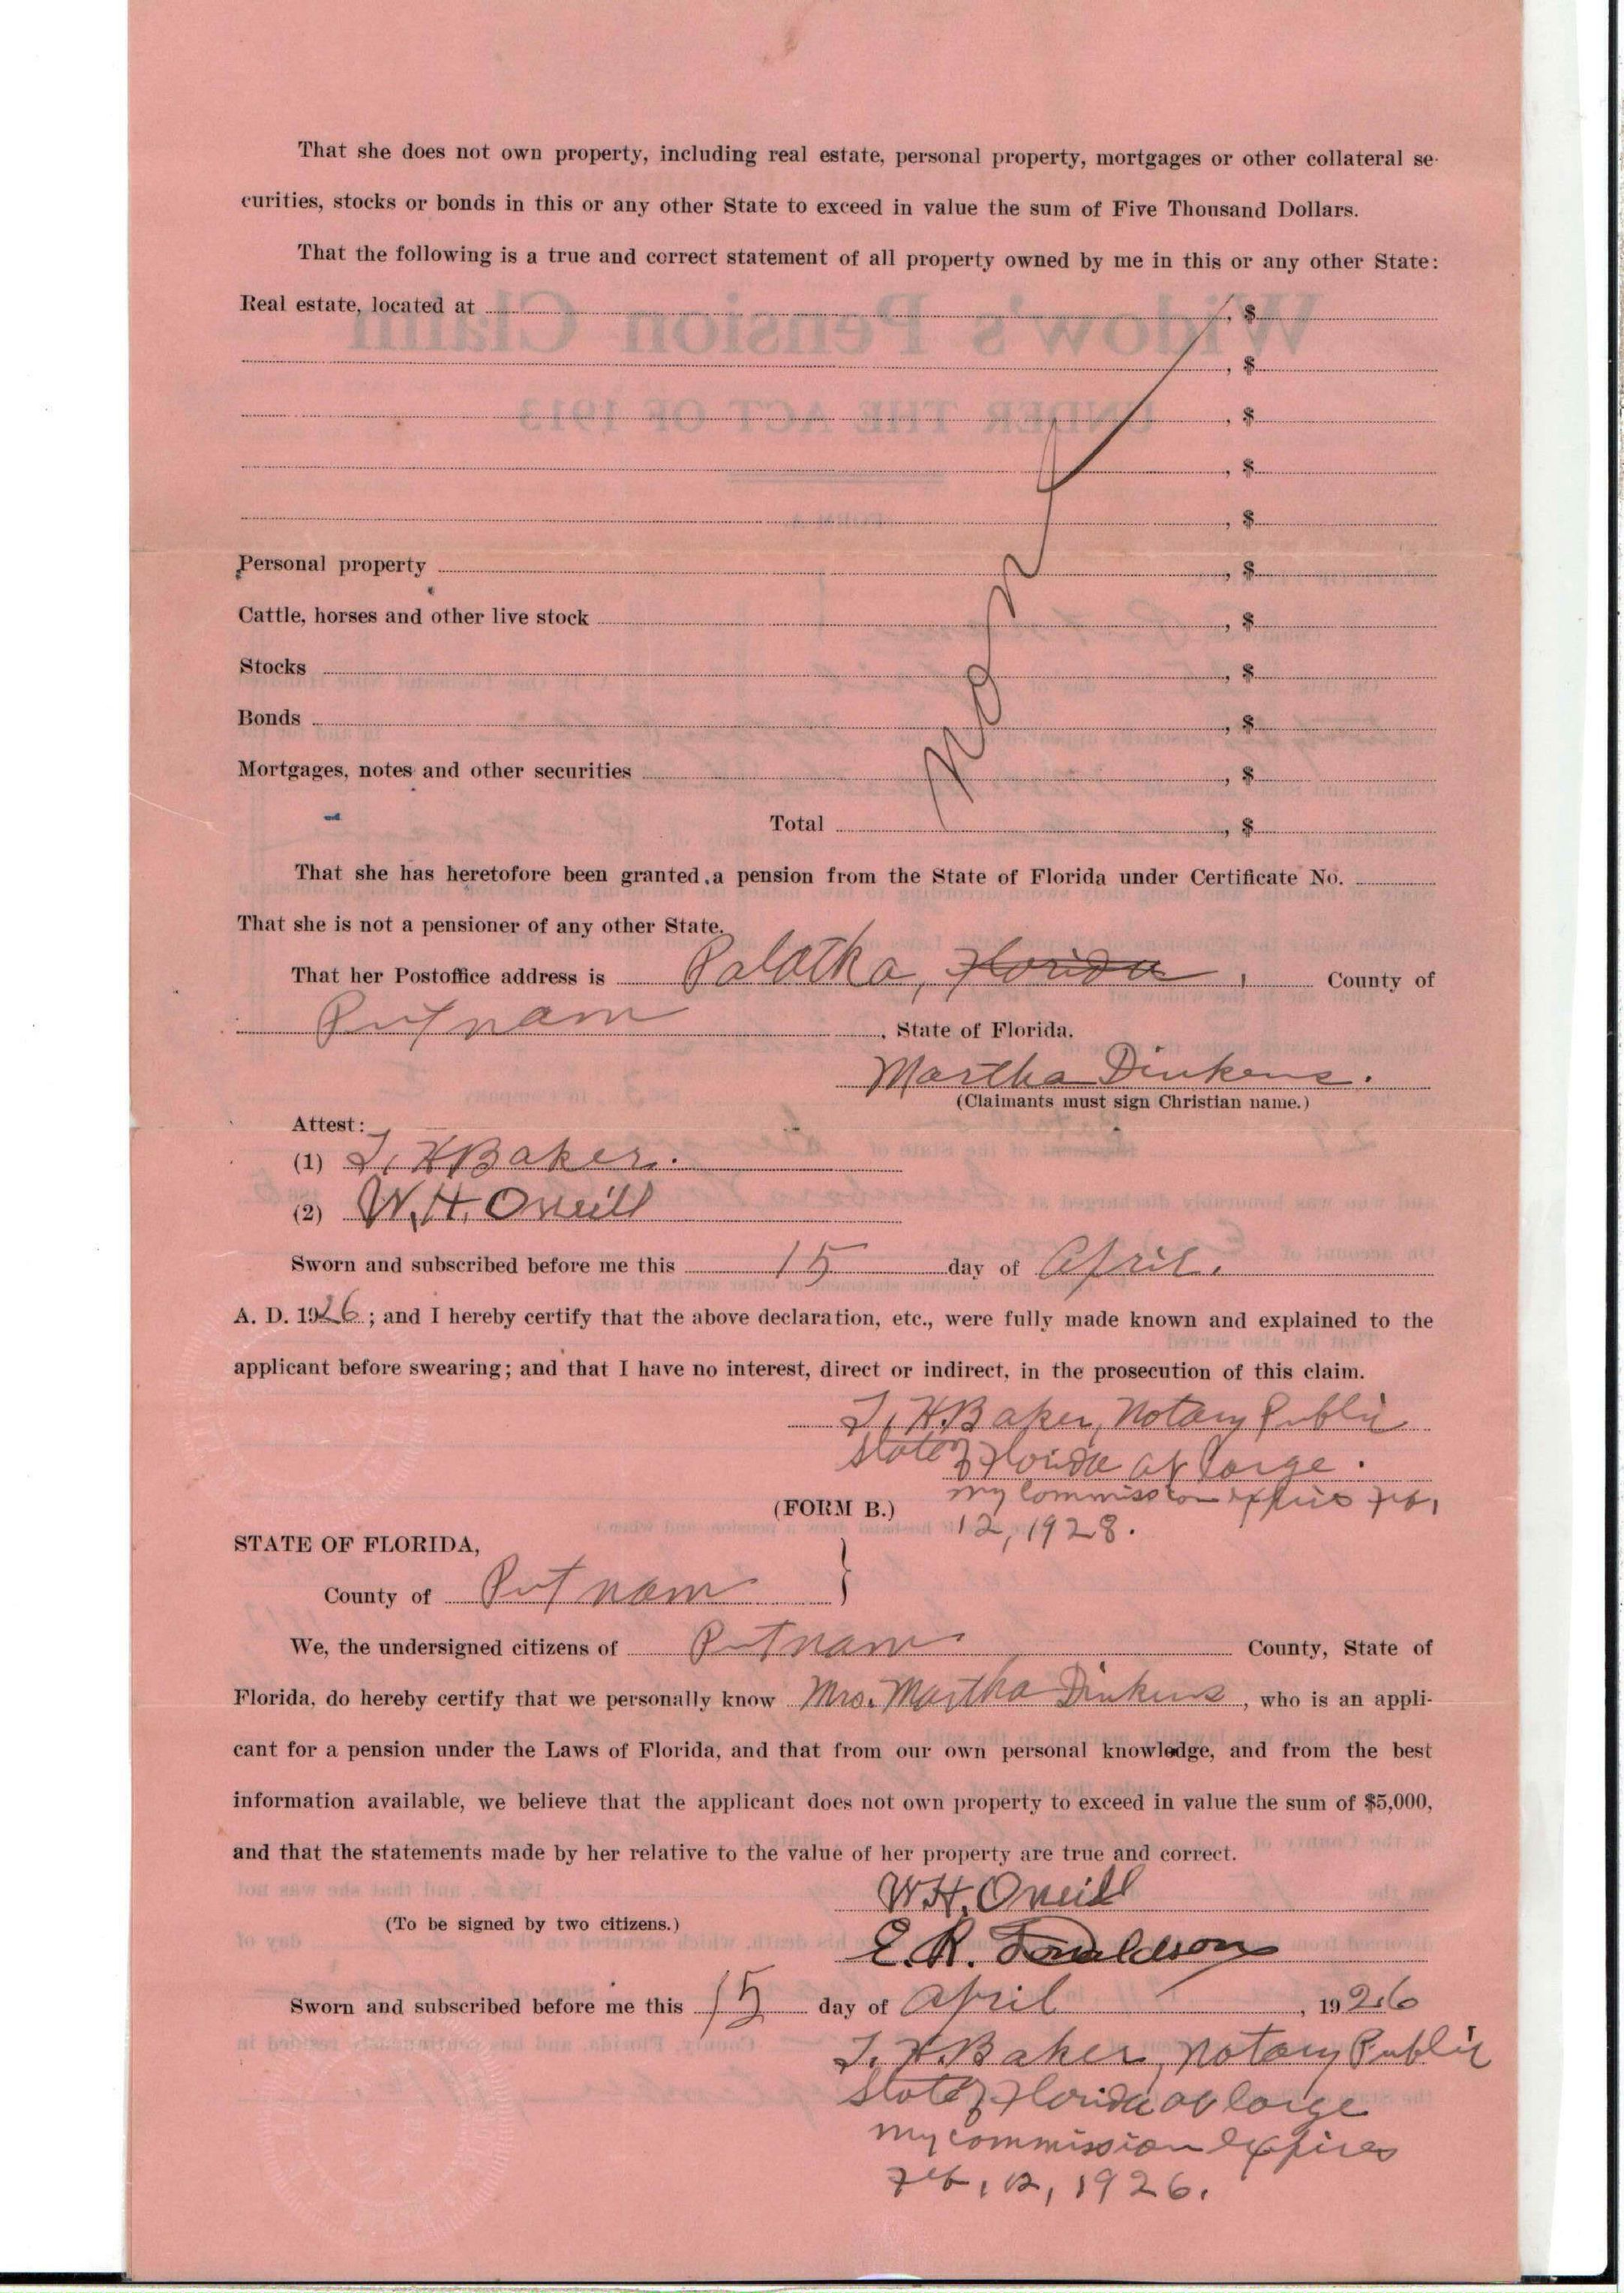 That she does not own property, including real estate, personal property, mortgages or other collateral se-
curities, stocks or bonds in this or any other State to exceed in value the sum of Five Thousand Dollars.
That the following is a true and correct statement of all property owned by me in this or any other State:
Real estate, located at , $
, $
, $
, $
, $
Personal property , $
Cattle, horses and other live stock , $
Stocks , $
Bonds , $
Mortgages, notes and other securities , $
Total , $
That she has heretofore been granted a pension from the State of Florida under Certificate No.
That she is not a pensioner of any other State.
That her Postoffice address is Palatka, Florida, County of
Putnam, State of Florida.
Martha Dinkens.
(Claimants must sign Christian name.)
Attest:
(1) Baker.
(2) W. H. Oneill
Sworn and subscribed before me this 15 day of April.
A. D. 1926; and I hereby certify that the above declaration, etc., were fully made known and explained to the
applicant before swearing; and that I have no interest, direct or indirect, in the prosecution of this claim.
Baker, Notary Public
State of Florida at Large.
My Commission expires Feb,
12, 1928.
(FORM B.)
STATE OF FLORIDA,
County of Putnam
We, the undersigned citizens of Putnam County, State of
Florida, do hereby certify that we personally know Mrs. Martha Dinkens, who is an appli-
cant for a pension under the Laws of Florida, and that from our own personal knowledge, and from the best
information available, we believe that the applicant does not own property to exceed in value the sum of $5,000,
and that the statements made by her relative to the value of her property are true and correct.
W. H. Oneill
(To be signed by two citizens.)
E. R.
Sworn and subscribed before me this 15 day of April, 1926
Baker, Notary Public
State of Florida at large
my commission expires
Feb, 12, 1926.